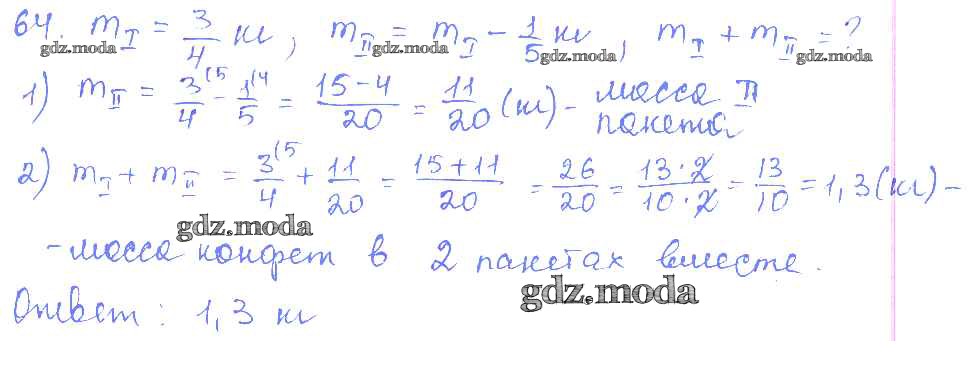 64. m_I = 3/4 кг, m_II = m_I - 1/5 кг, m_I + m_II = ?
gdz.moda gdz.moda gdz.moda gdz.moda
1) m_II = 3/4 (5 - 1/5 (4 = (15-4)/20 = 11/20 (кг) - масса II
пакета
2) m_I + m_II = 3/4 (5 + 11/20 = (15+11)/20 = 26/20 = (13·2)/(10·2) = 13/10 = 1,3 (кг) -
gdz.moda
- масса конфет в 2 пакетах вместе.
gdz.moda
Ответ: 1,3 кг